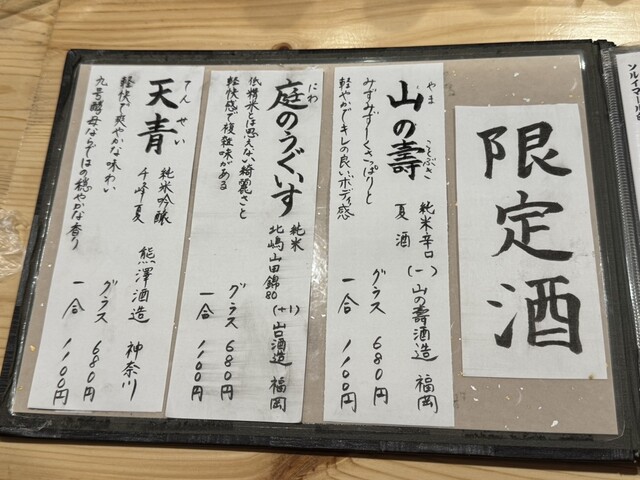 限定酒
やま ことぶき
山の壽
純米辛口 (一) 山の壽酒造 福岡
夏酒
みずみずしくさっぱりと
軽やかでキレの良いボディ感
グラス 680円
一合 1,100円
にわ
庭のうぐいす
純米
北嶋山田錦80 (+1) 山口酒造 福岡
低精米とは思えない綺麗さと
軽快感で複雑味がある
グラス 680円
一合 1,100円
てんせい
天青
純米吟醸 熊澤酒造 神奈川
千峰夏
軽快で爽やかな味わい
九号酵母ならではの穏やかな香り
グラス 680円
一合 1,100円